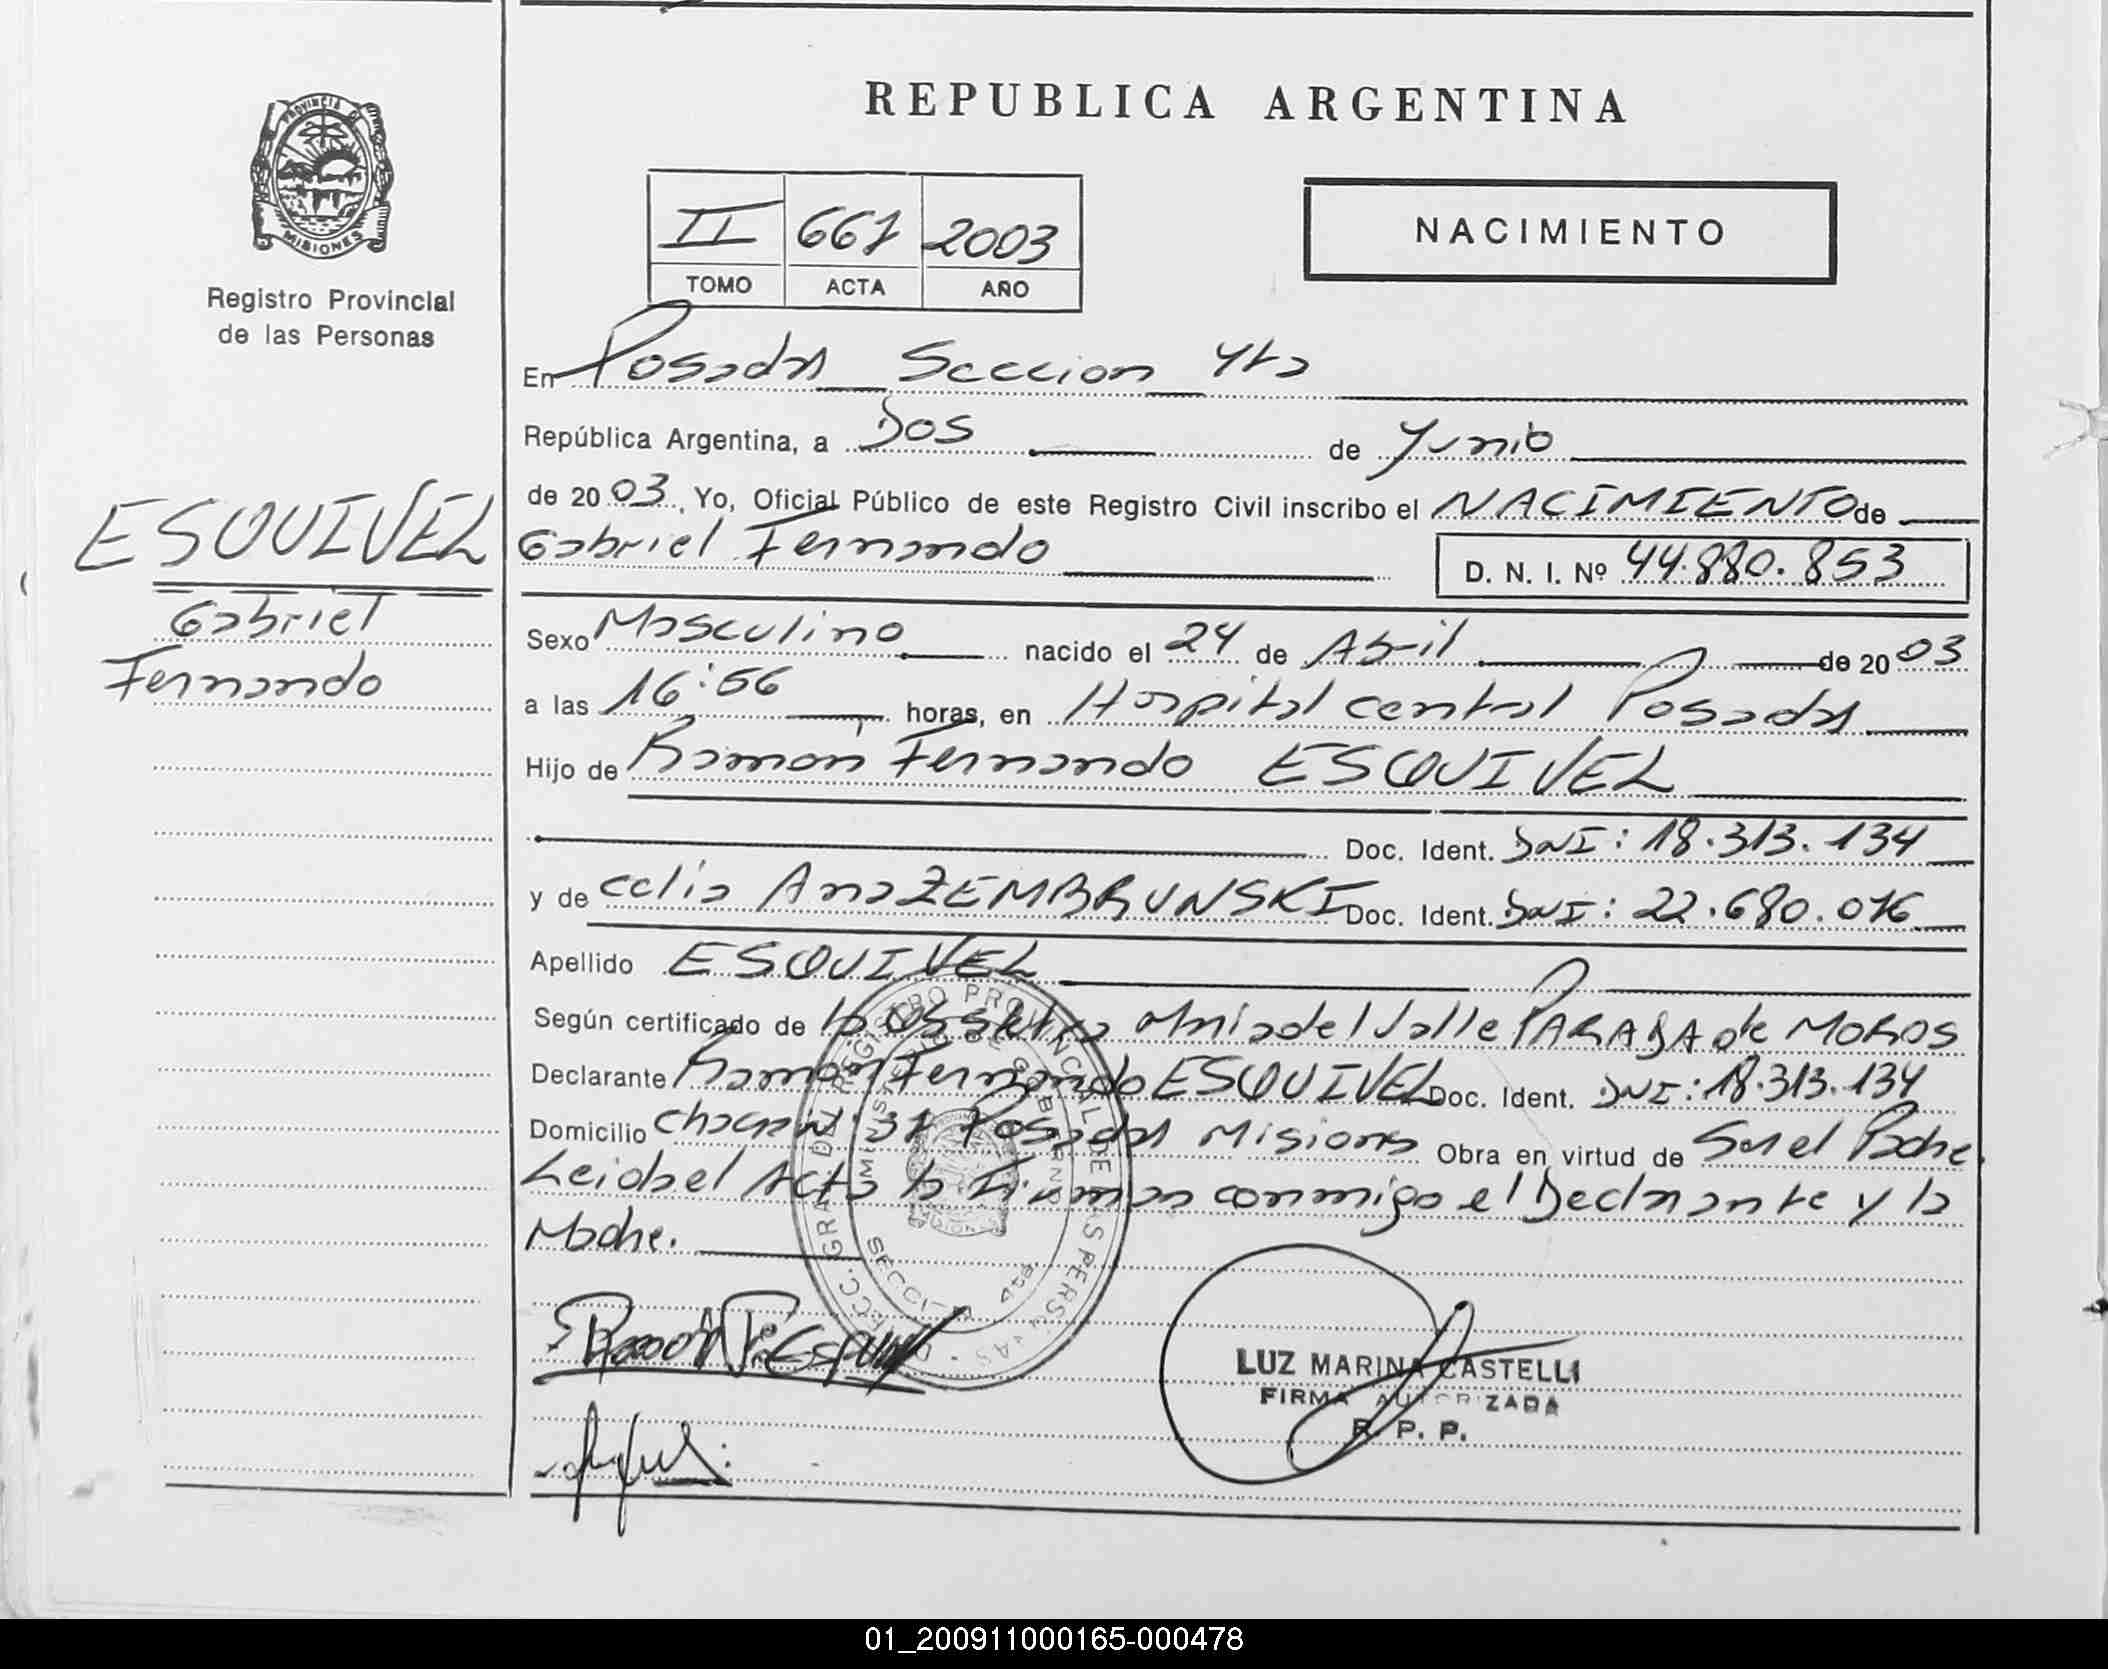 REPUBLICA ARGENTINA
PROVINCIA DE
MISIONES
Registro Provincial
de las Personas
II 661 2003
TOMO ACTA AÑO
NACIMIENTO
En Posadas Seccion 4ta
República Argentina, a Dos de Junio
de 2003, Yo, Oficial Público de este Registro Civil inscribo el NACIMIENTO de
Gabriel Fernando D. N. I. Nº 44.880.853
ESQUIVEL
Gabriel
Fernando
Sexo Masculino nacido el 24 de Abril de 2003
a las 16:56 horas, en Hospital central Posadas
Hijo de Ramon Fernando ESQUIVEL
Doc. Ident. DNI: 18.313.134
y de Celia Ana ZEMBRUNSKI Doc. Ident. DNI: 22.680.016
Apellido ESQUIVEL
Según certificado de la Obstetra Maria del Valle PARADA de MOROS
Declarante Ramon Fernando ESQUIVEL Doc. Ident. DNI: 18.313.134
Domicilio Posadas Misiones Obra en virtud de Ser el Padre.
Leida el Acta la Firman conmigo el Declarante y la
Madre.
DIRECC. GRAL. DEL REGISTRO PROVINCIAL DE LAS PERSONAS
MINISTERIO DE GOBIERNO
LUZ MARINA CASTELLI
FIRMA AUTORIZADA
R. P. P.
01_200911000165-000478